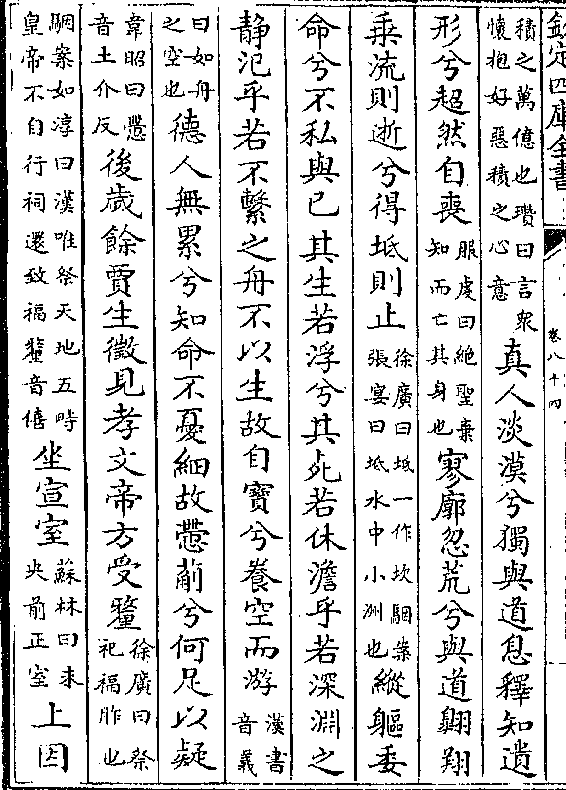 欽定四庫全書
卷八十四
積之萬億也瓚曰言衆懷抱好惡積之心意真人淡漠兮獨與道息釋知遺
形兮超然自喪服虔曰絶聖棄知而亡其身也寥廓忽荒兮與道翺翔
乗流則逝兮得坻則止徐廣曰坻一作坎駰案張晏曰坻水中小洲也縱軀委
命兮不私與已其生若浮兮其死若休澹乎若深淵之
静氾乎若不繫之舟不以生故自寶兮養空而游漢書音義
曰如舟之空也德人無累兮知命不憂細故慸葪兮何足以疑
韋昭曰慸音士介反後歲餘賈生徵見孝文帝方受釐徐廣曰祭祀福胙也
駰案如淳曰漢唯祭天地五畤皇帝不自行祠還致福釐音僖坐宣室蘇林曰未央前正室上因